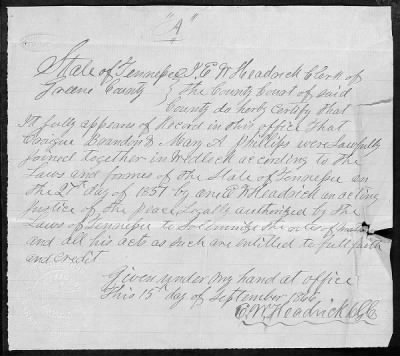 "A"
State of Tennessee } I C W Headrick Clerk of
Greene County } the County Court of said
County do herby Certify that
It fully appears of Record in this office that
Brandon & Mary A Phillips were Lawfully
joined together in Wedlock according to the
Laws and formes of the State of Tennessee on
the day of 1857 by W Headrick an acting
Justice of the peace Legally authorized by the
Laws of Tennessee to Solemnize the rites of
and all his acts as such are entitled to full faith
and Credit
Given under my hand at office
This 15th day of September 1866
C W Headrick Clk